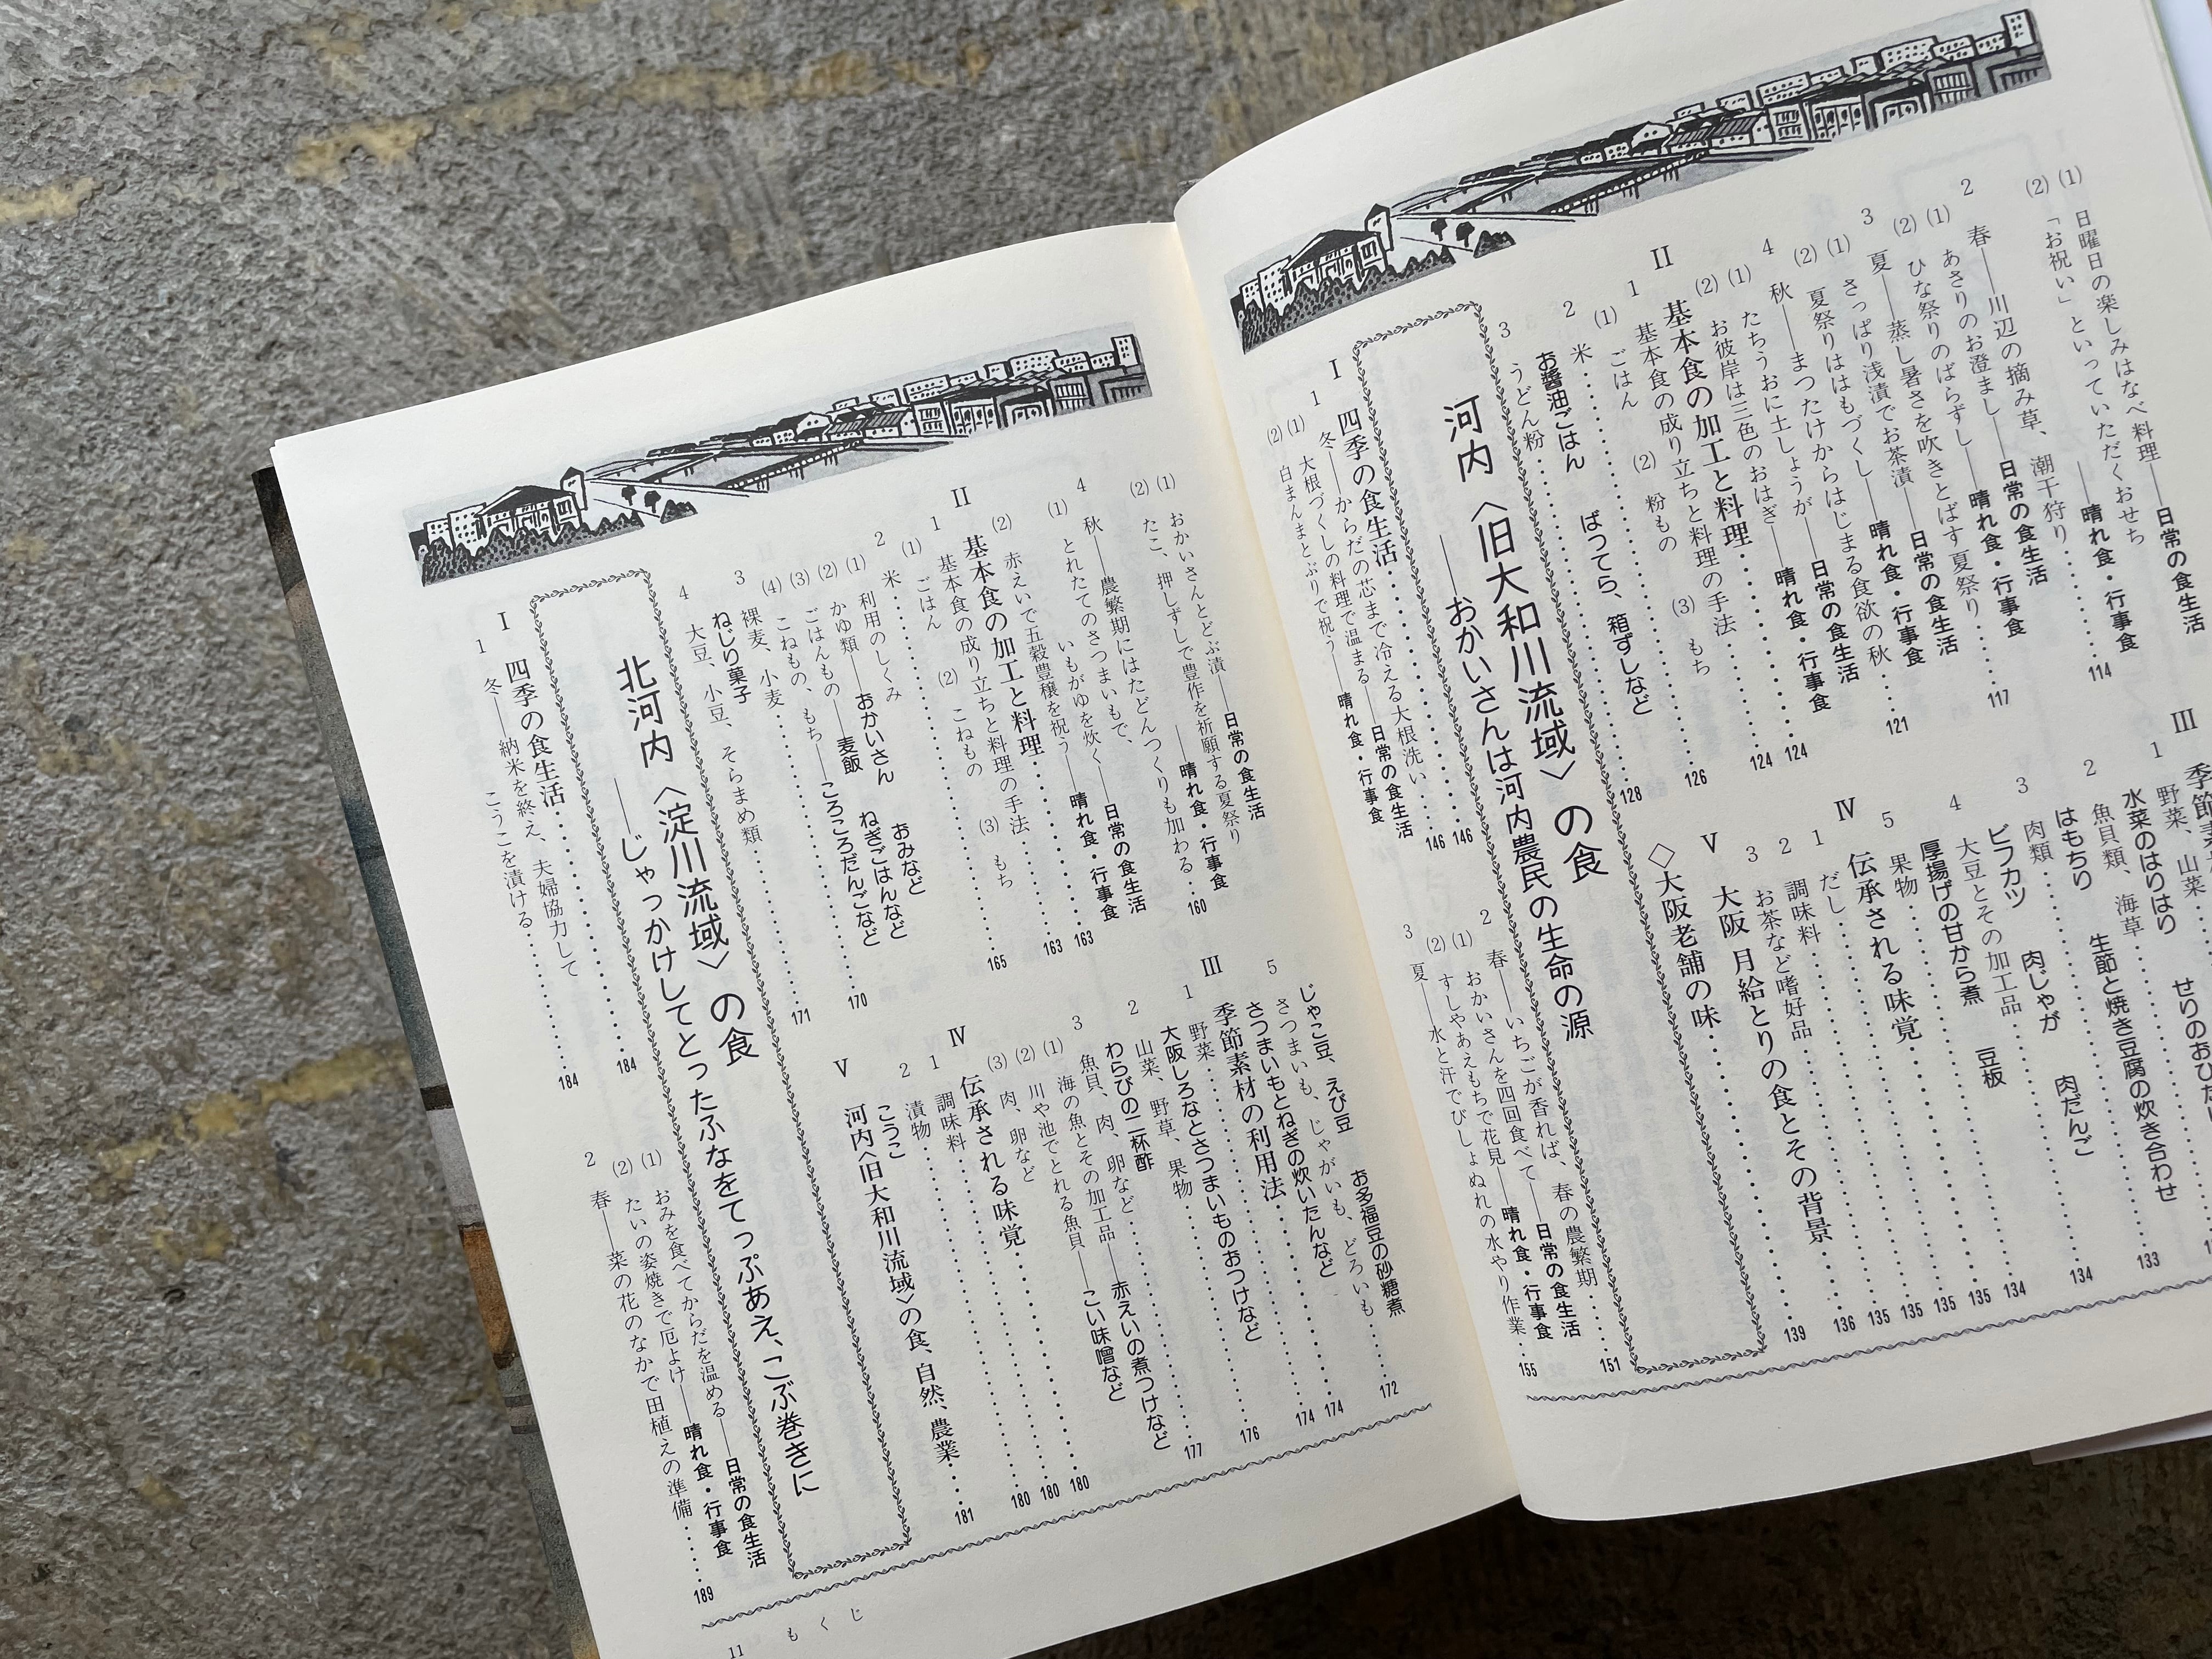 (1) 日曜日の楽しみはなべ料理――日常の食生活
(2) 「お祝い」といっていただくおせち
――晴れ食・行事食 114
2 春――川辺の摘み草、潮干狩り
(1) あさりのお澄まし――日常の食生活
(2) ひな祭りのばらずし――晴れ食・行事食 117
3 夏――蒸し暑さを吹きとばす夏祭り
(1) さっぱり浅漬でお茶漬――日常の食生活
(2) 夏祭りははもづくし――晴れ食・行事食 121
4 秋――まつたけからはじまる食欲の秋
(1) たちうおに土しょうが――日常の食生活
(2) お彼岸は三色のおはぎ――晴れ食・行事食 124
II 基本食の加工と料理 124
1 基本食の成り立ちと料理の手法 126
(1) ごはん (2) 粉もの (3) もち
2 米 128
お醬油ごはん ばってら、箱ずしなど
3 うどん粉
III
1 野菜、山菜
水菜のはりはり
2 魚貝類、海草 133
はもちり 生節と焼き豆腐の炊き合わせ
3 肉類 134
ビフカツ 肉じゃが 肉だんご
4 大豆とその加工品 134
厚揚げの甘から煮 豆板
5 果物 135
IV 伝承される味覚 135
1 だし 135
2 調味料 135
3 お茶など嗜好品 136
V 大阪 月給とりの食とその背景 139
◇大阪老舗の味
河内〈旧大和川流域〉の食
――おかいさんは河内農民の生命の源
I 四季の食生活 146
1 冬――からだの芯まで冷える大根洗い 146
(1) 大根づくしの料理で温まる――日常の食生活
(2) 白まんまとぶりで祝う――晴れ食・行事食
2 春――いちごが香れば、春の農繁期 151
(1) おかいさんを四回食べて――日常の食生活
(2) すしやあえもちで花見――晴れ食・行事食
3 夏――水と汗でびしょぬれの水やり作業 155
(1) おかいさんとどぶ漬――日常の食生活
(2) たこ、押しずしで豊作を祈願する夏祭り
――晴れ食・行事食 160
4 秋――農繁期にはたどんつくりも加わる
(1) とれたてのさつまいもで、
いもがゆを炊く――日常の食生活
(2) 赤えいで五穀豊穣を祝う――晴れ食・行事食 163
II 基本食の加工と料理 163
1 基本食の成り立ちと料理の手法 165
(1) ごはん (2) こねもの (3) もち
2 米
(1) 利用のしくみ
(2) かゆ類――おかいさん おみなど
(3) ごはんもの――麦飯 ねぎごはんなど
(4) こねもの、もち――ころころだんごなど
3 裸麦、小麦 170
ねじり菓子
4 大豆、小豆、そらまめ類 171
じゃこ豆、えび豆 お多福豆の砂糖煮
5 さつまいも、じゃがいも、どろいも 172
さつまいもとねぎの炊いたんなど
III 季節素材の利用法 174
1 野菜 174
大阪しろなとさつまいものおつけなど
2 山菜、野草、果物 176
わらびの二杯酢
3 魚貝、肉、卵など 177
(1) 海の魚とその加工品――赤えいの煮つけなど
(2) 川や池でとれる魚貝――こい味噌など
(3) 肉、卵など
IV 伝承される味覚 180
1 調味料 180
2 漬物 180
こうこ
V 河内〈旧大和川流域〉の食、自然、農業 181
北河内〈淀川流域〉の食
――じゃっかけしてとったふなをてっぷあえ、こぶ巻きに
I 四季の食生活 184
1 冬――納米を終え、夫婦協力して
こうこを漬ける 184
(1) おみを食べてからだを温める――日常の食生活
(2) たいの姿焼きで厄よけ――晴れ食・行事食
2 春――菜の花のなかで田植えの準備 189
11 もくじ